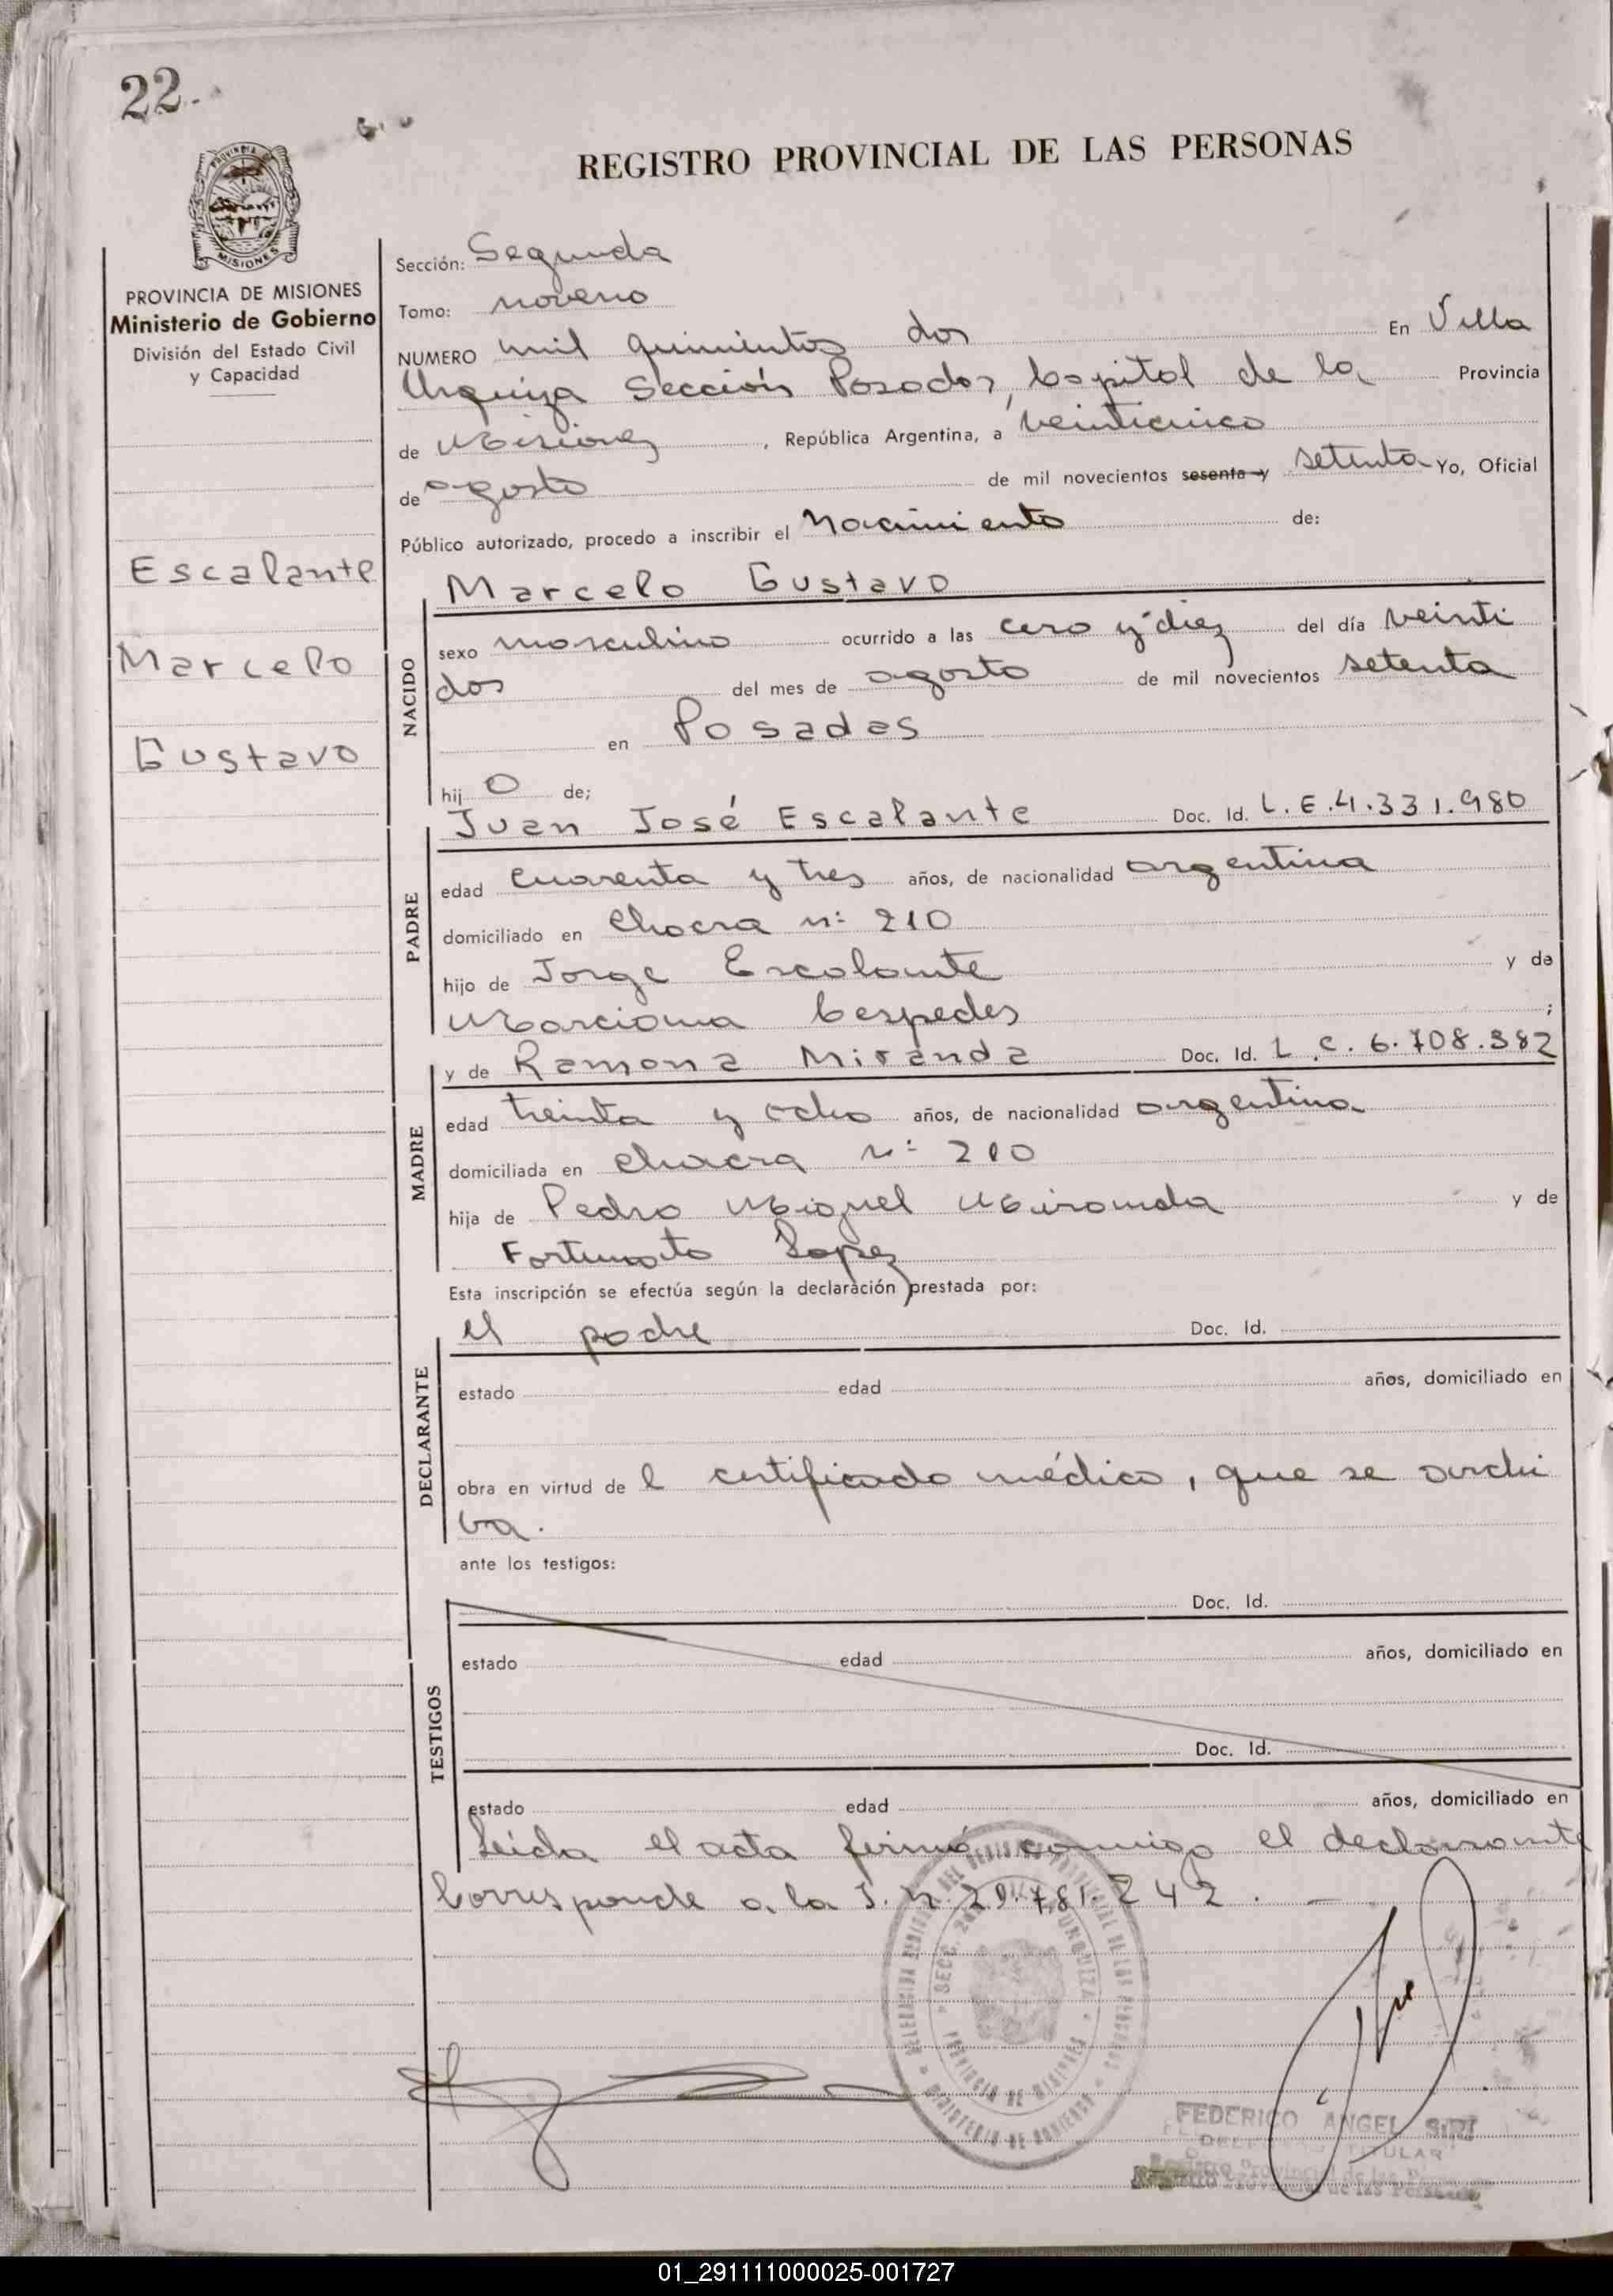 22.
REGISTRO PROVINCIAL DE LAS PERSONAS
PROVINCIA
MISIONES
PROVINCIA DE MISIONES
Ministerio de Gobierno
División del Estado Civil
y Capacidad
Escalante
Marcelo
Gustavo
Sección: Segunda
Tomo: noveno
NUMERO mil quinientos dos En Villa
Urquiza Sección Posadas, Capital de la Provincia
de Misiones, República Argentina, a veinticinco
de agosto de mil novecientos sesenta y setenta Yo, Oficial
Público autorizado, procedo a inscribir el Nacimiento de:
Marcelo Gustavo
NACIDO
sexo masculino ocurrido a las cero y diez del día veinti
dos del mes de agosto de mil novecientos setenta
en Posadas
hij o de;
Juan José Escalante Doc. Id. L.E.4.331.980
PADRE
edad cuarenta y tres años, de nacionalidad argentina
domiciliado en Chacra nº 210
hijo de Jorge Escalante y de
Marciana Cespedes ;
y de Ramona Miranda Doc. Id. L.C.6.708.382
MADRE
edad treinta y ocho años, de nacionalidad argentina
domiciliada en chacra nº 210
hija de Pedro Miguel Miranda y de
Fortunata Lopez
Esta inscripción se efectúa según la declaración prestada por:
el padre Doc. Id.
DECLARANTE
estado edad años, domiciliado en
obra en virtud de l certificado médico, que se archi
va.
ante los testigos:
Doc. Id.
TESTIGOS
estado edad años, domiciliado en
Doc. Id.
estado edad años, domiciliado en
Leida el acta firmó conmigo el declarante
Corresponde a la I. N. 21.781.242.
PROVINCIA DE MISIONES
MINISTERIO DE GOBIERNO
FEDERICO ANGEL SIRI
TITULAR
Registro Provincial de las Personas
01_291111000025-001727